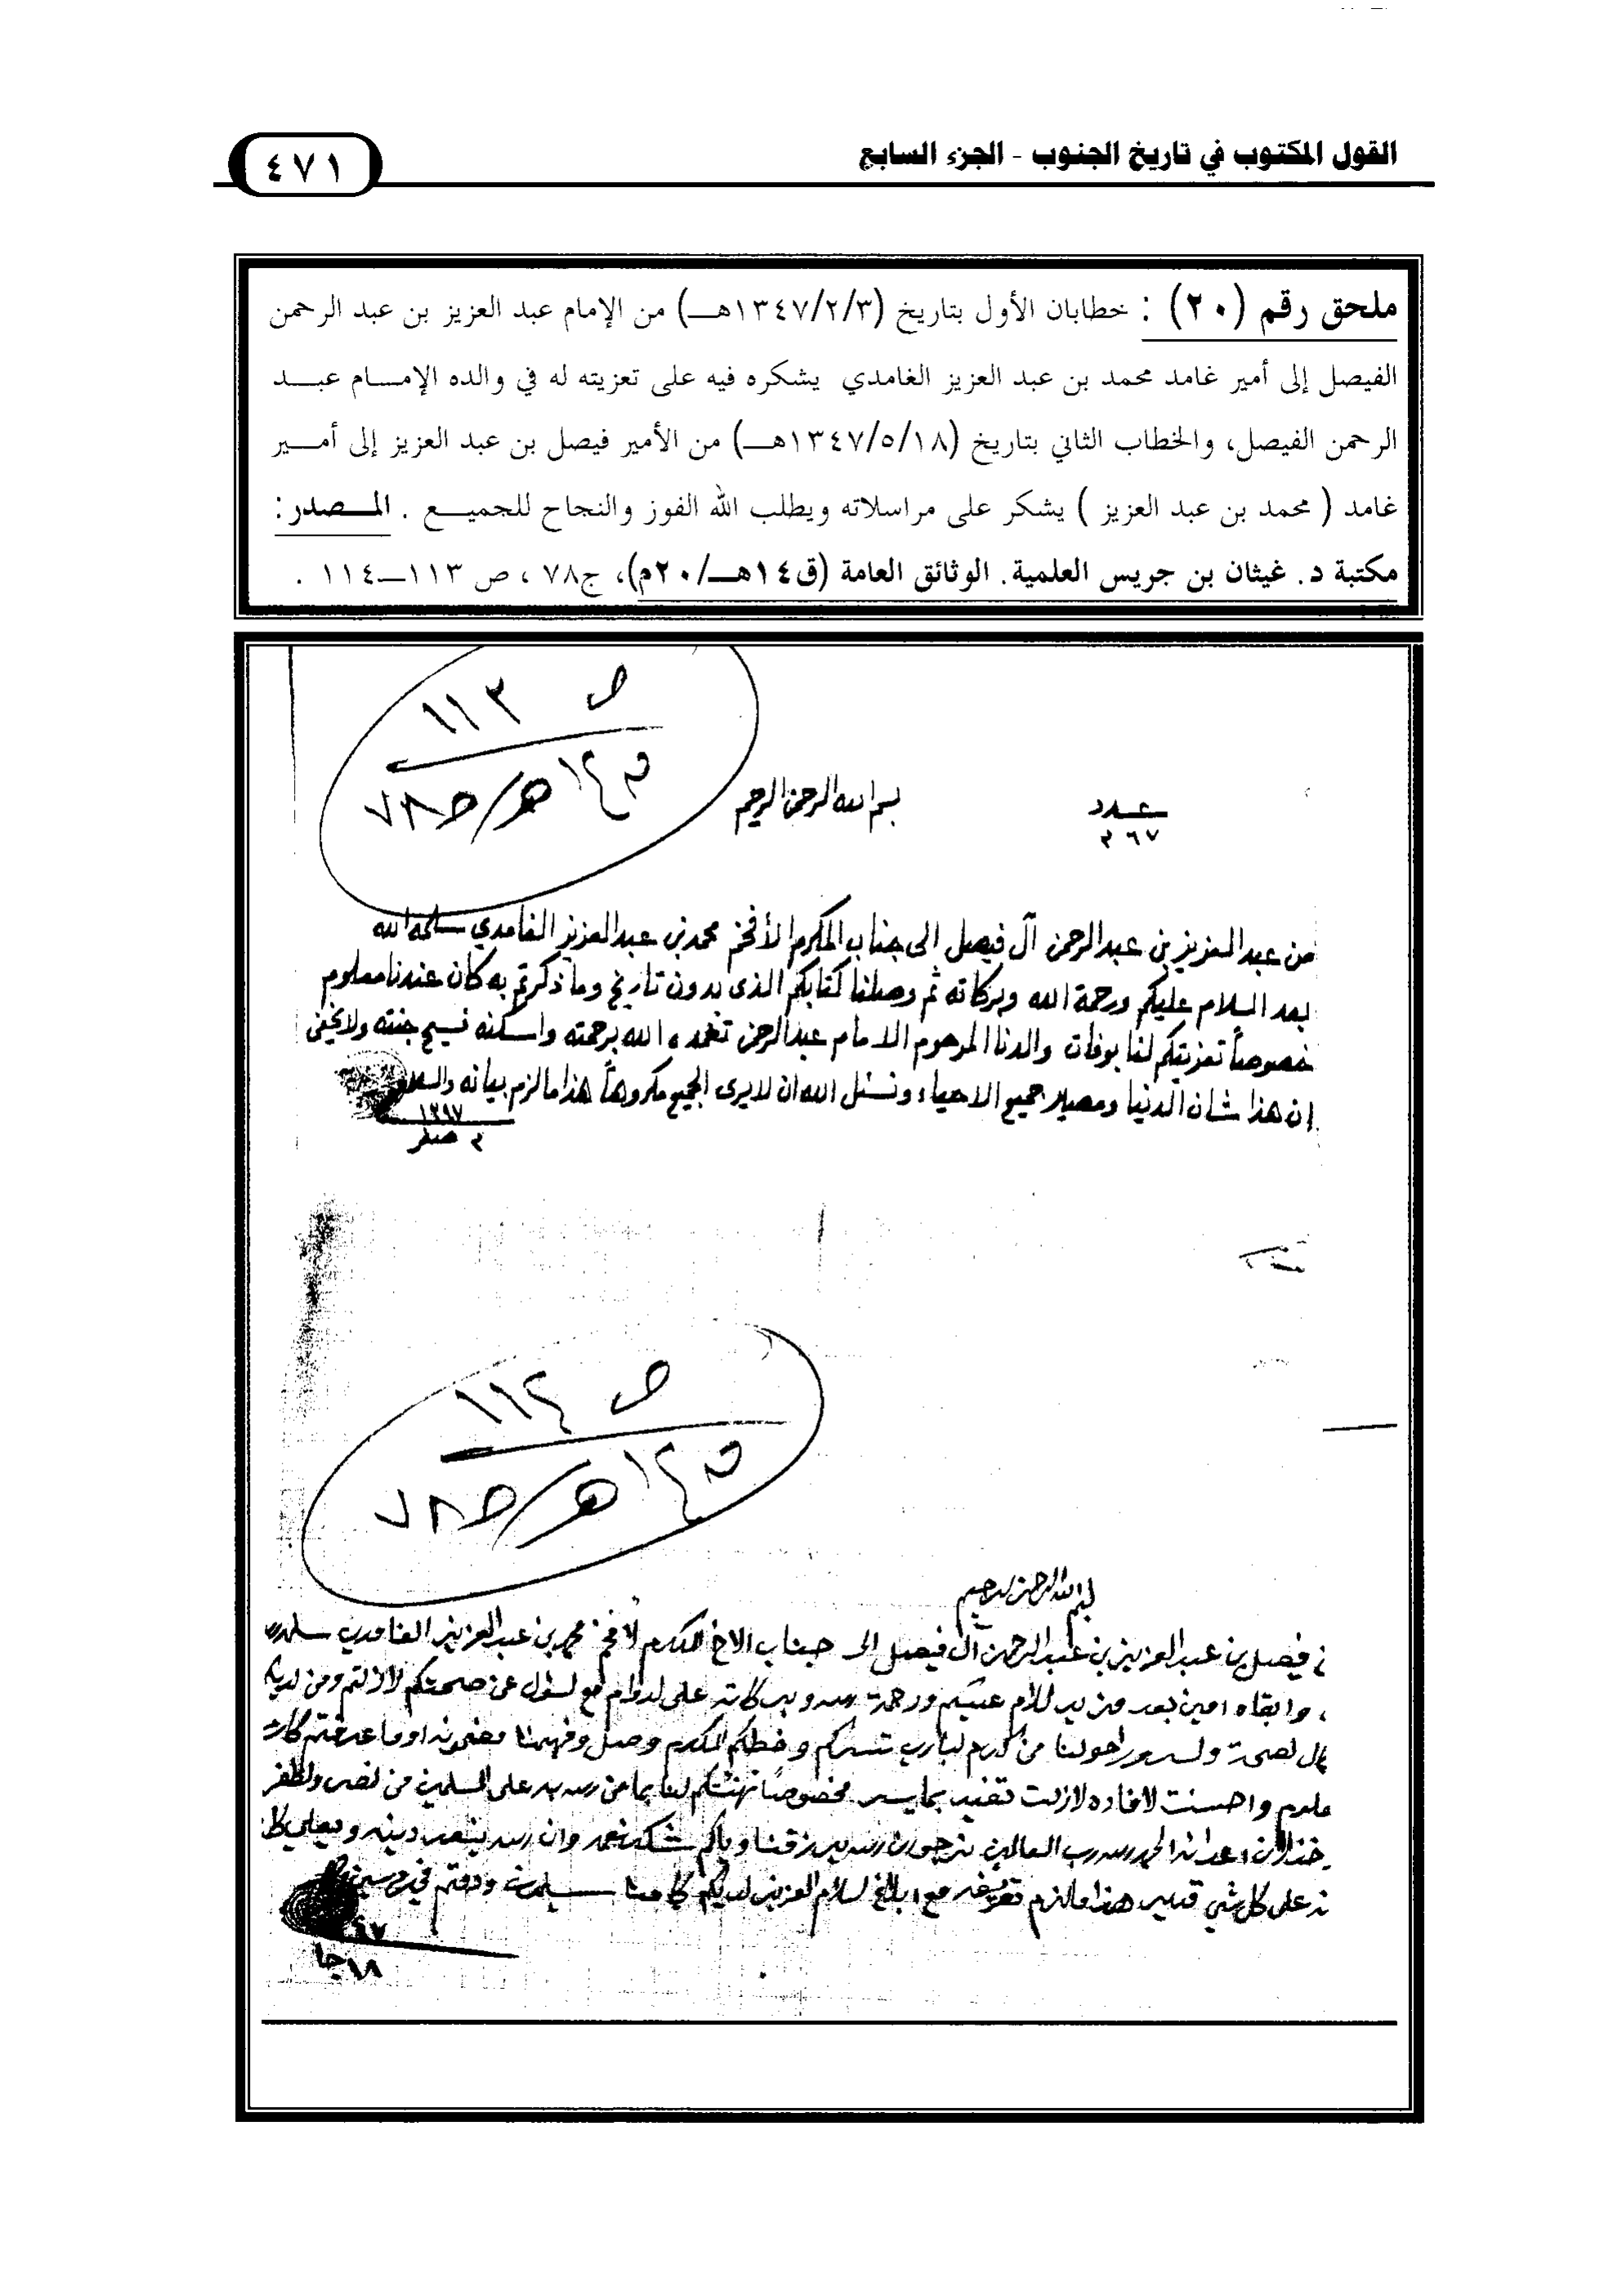 القول المكتوب في تاريخ الجنوب - الجزء السابع
٤٧١
ملحق رقم (٢٠) : خطابان الأول بتاريخ (١٣٤٧/٢/٣هـ) من الإمام عبد العزيز بن عبد الرحمن
الفيصل إلى أمير غامد محمد بن عبد العزيز الغامدي يشكره فيه على تعزيته له في والده الإمام عبد
الرحمن الفيصل، والخطاب الثاني بتاريخ (١٣٤٧/٥/١٨هـ) من الأمير فيصل بن عبد العزيز إلى أمير
غامد ( محمد بن عبد العزيز ) يشكر على مراسلاته ويطلب الله الفوز والنجاح للجميع . المصدر:
مكتبة د. غيثان بن جريس العلمية. الوثائق العامة (ق١٤هـ/٢٠م)، ج٧٨ ، ص ١١٣-١١٤ .
ص ١١٣
ق ١٤هـ/ح٧٨
بسم الله الرحمن الرحيم
عدد
٣٦٧
من عبد العزيز بن عبد الرحمن آل فيصل الى جناب المكرم الأفخم محمد بن عبد العزيز الغامدي سلمه الله
بعد السلام عليكم ورحمة الله وبركاته ثم وصلنا كتابكم الذى بدون تاريخ وما ذكرتم به كان عندنا معلوم
خصوصاً تعزيتكم لنا بوفات والدنا المرحوم الامام عبد الرحمن تغمده الله برحمته واسكنه فسيح جنته ولا يخفى
ان هذا شان الدنيا ومصير جميع الاحياء ونسئل الله ان لا يرى الجميع مكروهاً هذا ما لزم بيانه والسلام
١٣٤٧
٣ صفر
ص ١١٤
ق ١٤هـ/ح٧٨
بسم الله الرحمن الرحيم
فيصل بن عبد العزيز بن عبد الرحمن آل فيصل الى جناب الاخ المكرم الافخم محمد بن عبد العزيز الغامدي سلمه
وابقاه امين بعد مزيد السلام عليكم ورحمة الله وبركاته على الدوام مع السؤل عن صحتكم لازلتم ومن لديه
الصحة والسرور احولنا من كرم الباري تسركم وخطكم المكرم وصل وفهمنا مضمونه اوما عرفتم كان
علوم واحسنت الافاده لازلت تفيد بما يسر مخصوصاً تهنئتكم لنا بما من الله به على المسلمين من النصر والظفر
خذلان اعدائه الحمد لله رب العالمين نرجو ان الله يرزقنا وياكم شكر نعمه وان الله ينصر دينه ويعلي كل
على كل شي قدير هذا مالزم تعريفه مع ابلاغ السلام العزيز لديكم كما منا سلمت ودمتم
٤٧
١٨ جا